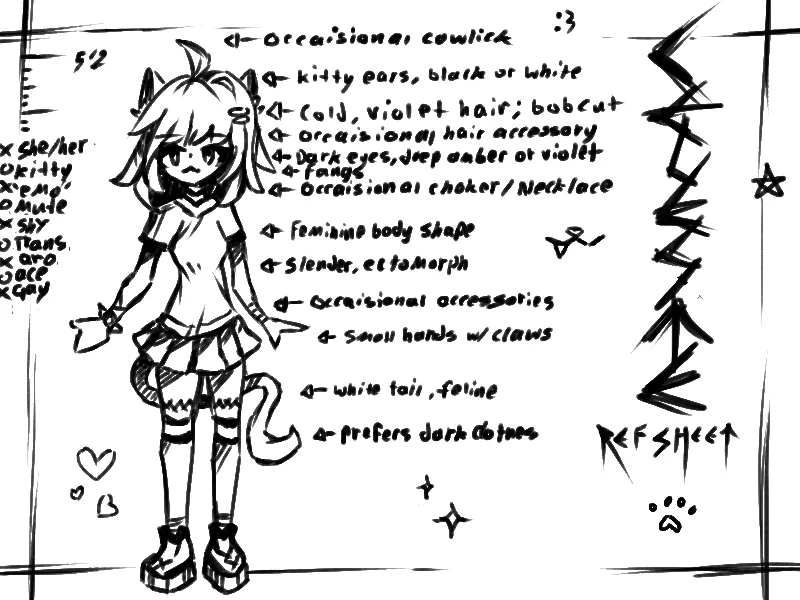 :3
5'2
Occaisional cowlick
kitty ears, black or white
Cold, violet hair; bobcut
Occaisional hair accessory
Dark eyes, deep amber or violet
Fangs
Occaisional choker/Necklace
Feminine body shape
Slender, ectomorph
Occaisional accessories
Small hands w/ claws
white tail, feline
prefers dark clothes
x she/her
o kitty
x "emo"
o Mute
x shy
o Trans
x aro
o ace
x Gay
REF SHEET